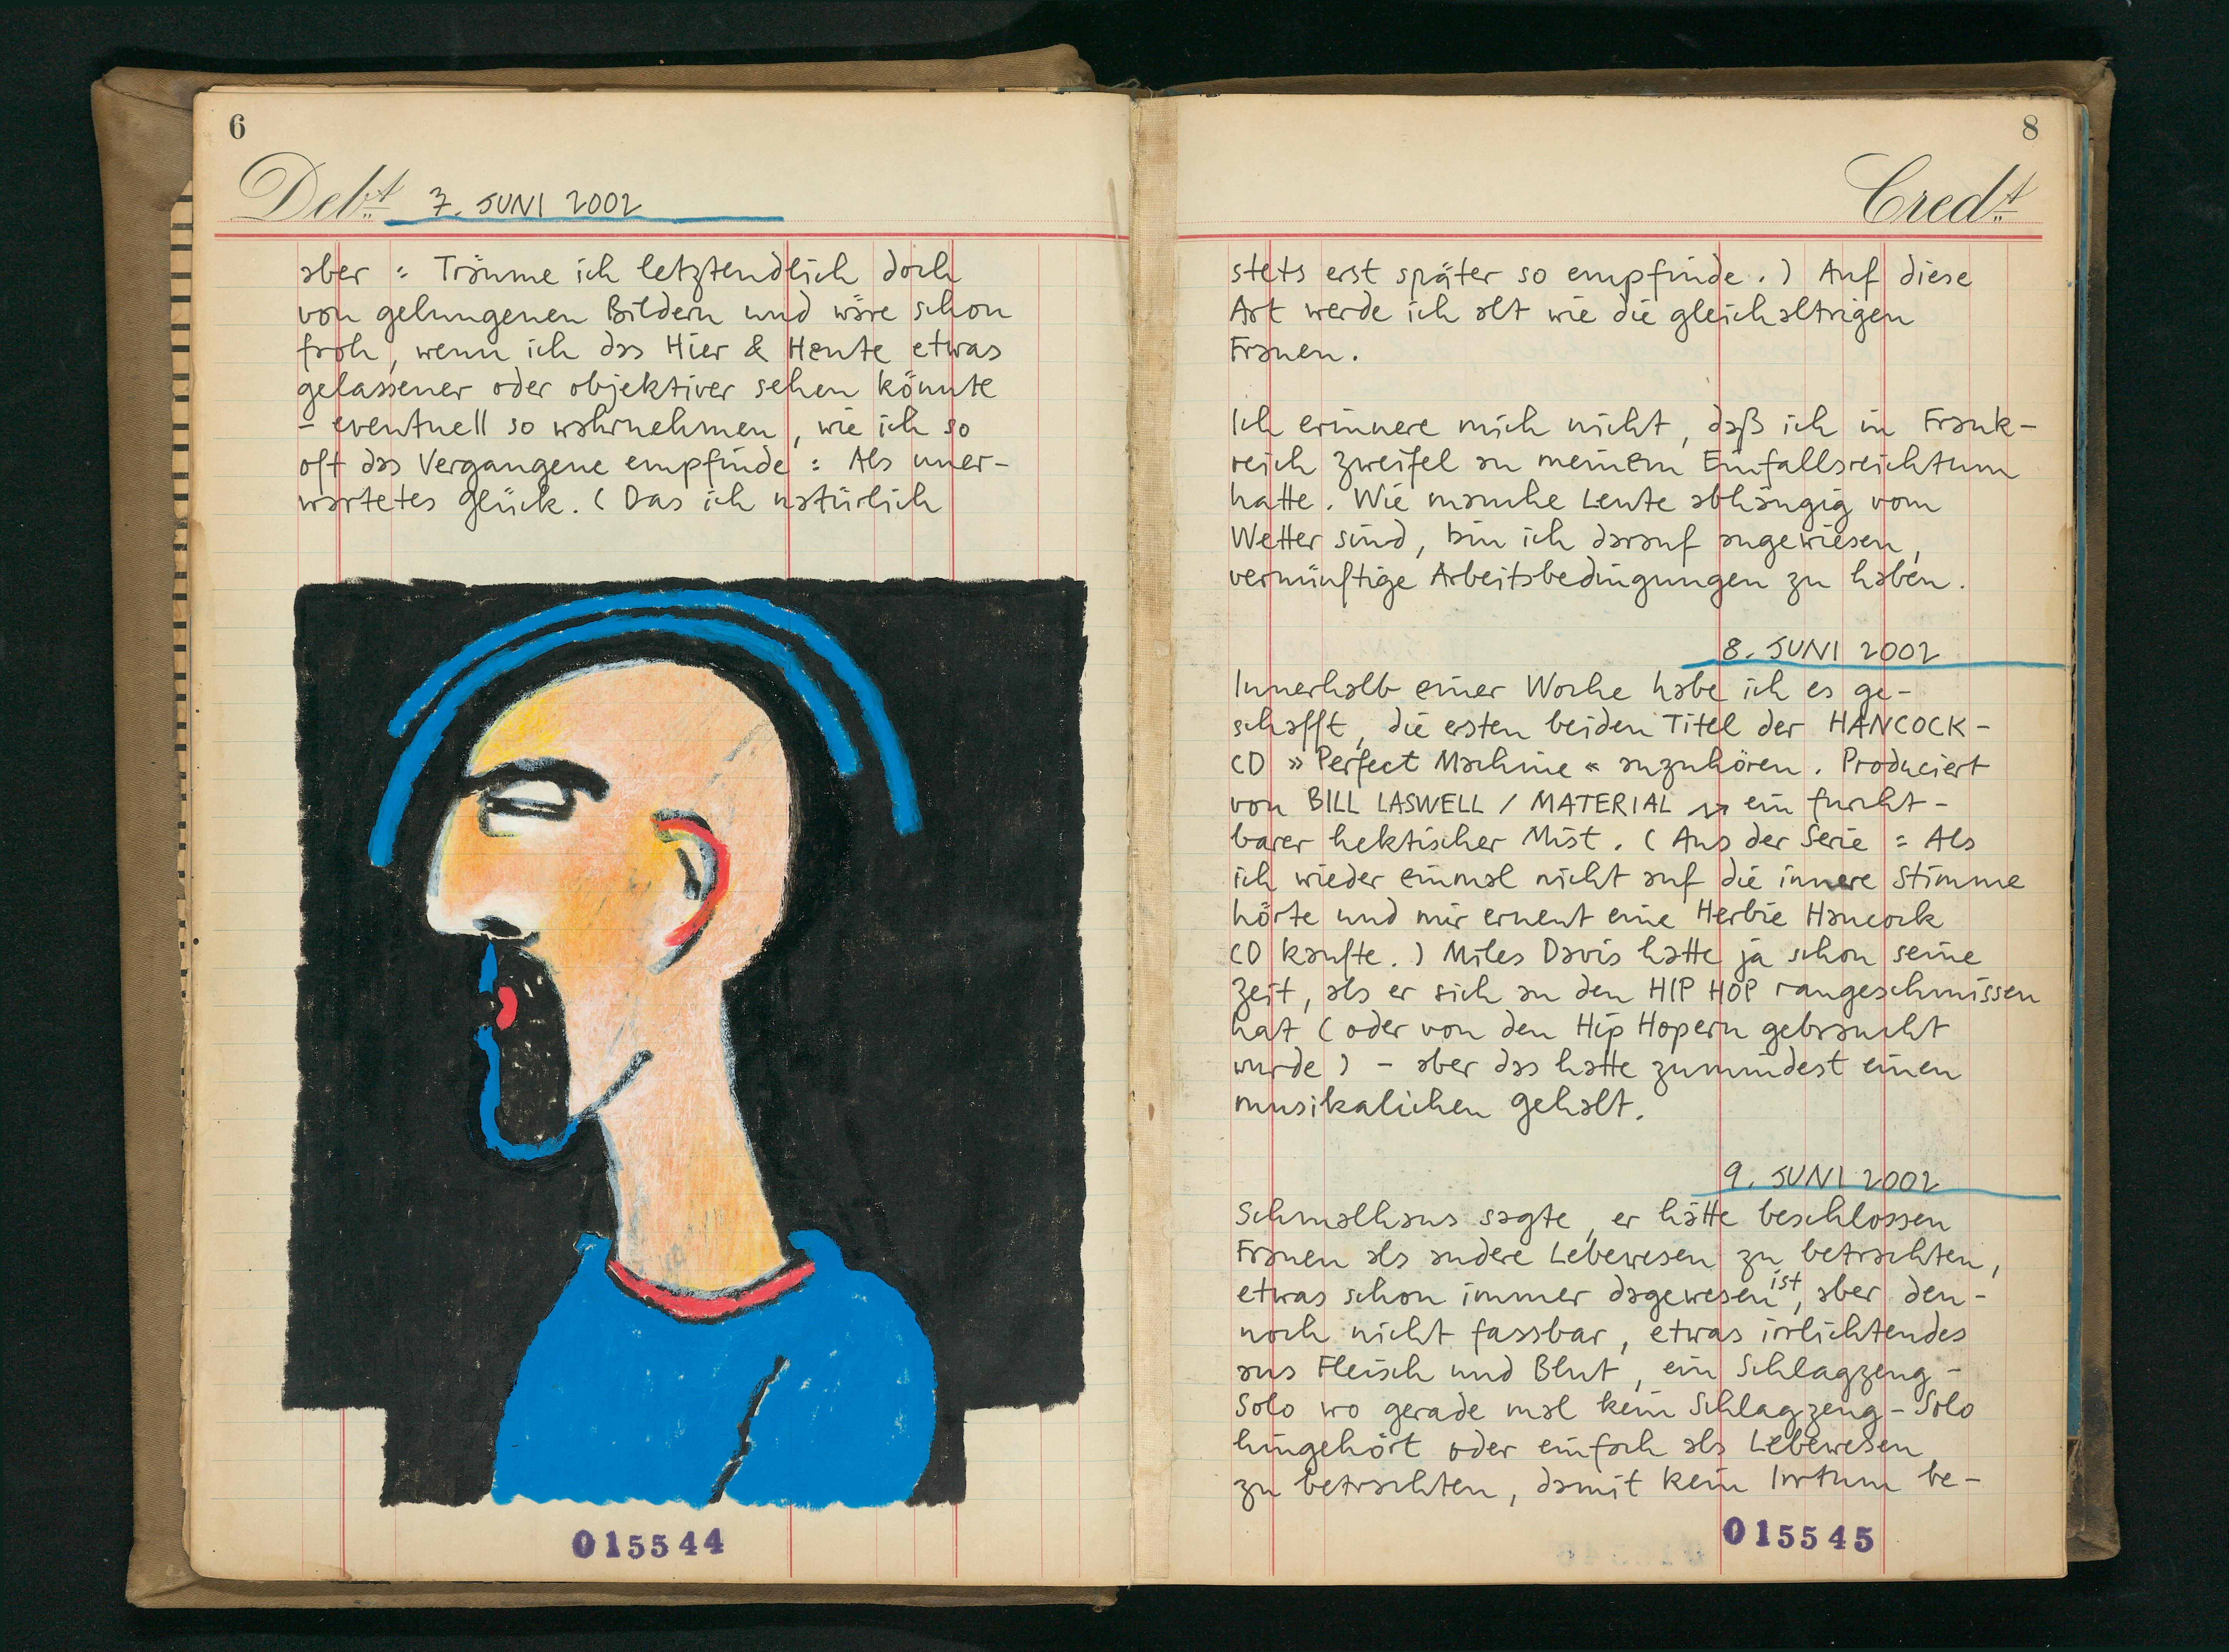 6
Debt 7. JUNI 2002
aber : Träume ich letztendlich doch
von gelungenen Bildern und wäre schon
froh, wenn ich das Hier & Heute etwas
gelassener oder objektiver sehen könnte
– eventuell so wahrnehmen, wie ich so
oft das Vergangene empfinde : Als uner-
wartetes Glück. ( Das ich natürlich
015544
8
Credt
stets erst später so empfinde. ) Auf diese
Art werde ich alt wie die gleichaltrigen
Frauen.
Ich erinnere mich nicht, daß ich in Frank-
reich Zweifel an meinem Einfallsreichtum
hatte. Wie manche Leute abhängig vom
Wetter sind, bin ich darauf angewiesen,
vernünftige Arbeitsbedingungen zu haben.
8. JUNI 2002
Innerhalb einer Woche habe ich es ge-
schafft, die ersten beiden Titel der HANCOCK-
CD » Perfect Machine « anzuhören. Produciert
von BILL LASWELL / MATERIAL → ein furcht-
barer hektischer Mist. ( Aus der Serie : Als
ich wieder einmal nicht auf die innere Stimme
hörte und mir erneut eine Herbie Hancock
CD kaufte. ) Miles Davis hatte ja schon seine
Zeit, als er sich an den HIP HOP rangeschmissen
hat ( oder von den Hip Hopern gebraucht
wurde ) – aber das hatte zumindest einen
musikalichen Gehalt.
9. JUNI 2002
Schmalhaus sagte, er hätte beschlossen
Frauen als andere Lebewesen zu betrachten,
etwas schon immer dagewesen ist, aber den-
noch nicht fassbar, etwas irrlichtendes
aus Fleisch und Blut, ein Schlagzeug-
Solo wo gerade mal kein Schlagzeug-Solo
hingehört oder einfach als Lebewesen
zu betrachten, damit kein Irrtum be-
015545